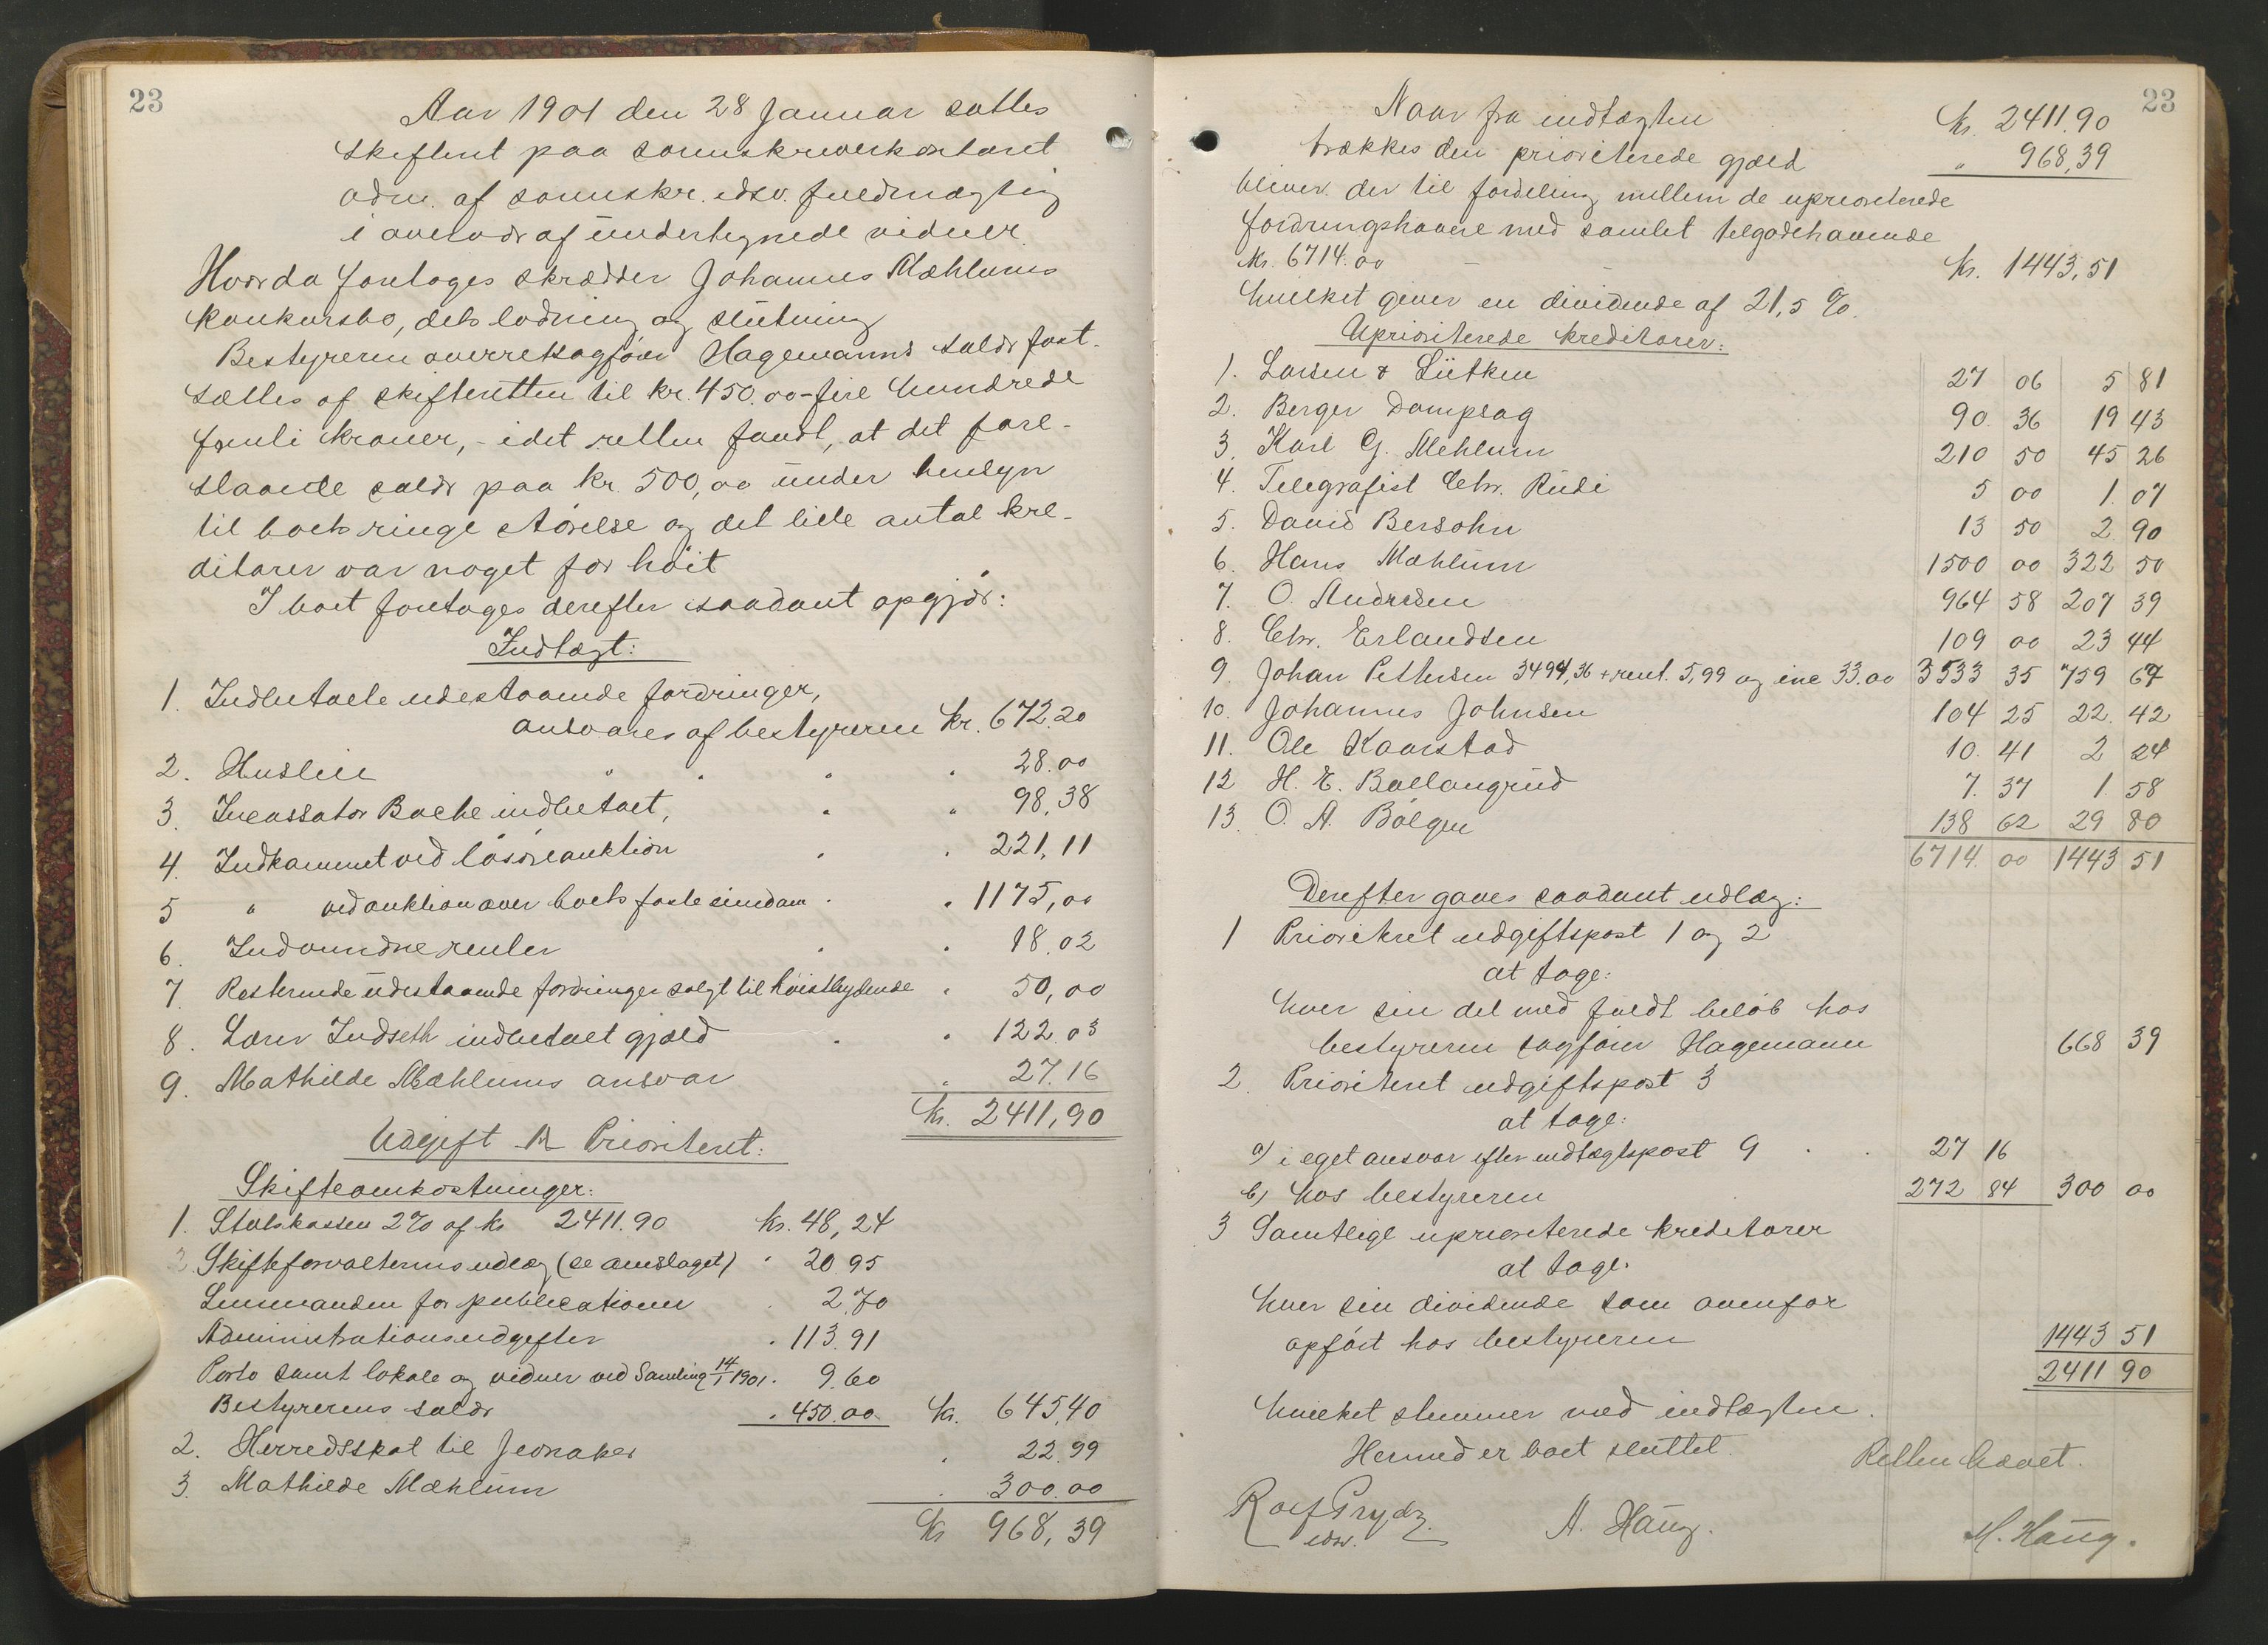 23
Aar 1901 den 28 Januar sattes
skifteret paa sorenskriverkontoret
adm. af sorenskr. edsv. fuldmægtig
i overvær af undertegnede vidner.
Hvorda foretoges skrædder Johannes Mæhlums
konkursbo, dets lodning og slutning
Bestyreren overretssagfører Hagemanns salær fast-
sættes af skifteretten til kr. 450.00 - fire hundrede
femti kroner, - idet retten fandt, at det fore-
slaaede salær paa kr. 500,00 under hensyn
til boets ringe størelse og det lille antal kre-
ditorer var noget for høit
I boet foretoges derefter saadant opgjør:
Indtægt:
1. Indbetalte udestaaende fordringer,
ansvares af bestyreren kr. 672.20
2. Husleie " " " " 28.00
3. Incassator Bache indbetalt, " " 98,38
4. Indkommet ved løsøreauktion " " 221,11
5 " ved auktion over boets faste eiendom " " 1175,00
6. Indvundne renter " " 18.02
7 Resterende udestaaende fordringer solgt til høistbydende " 50,00
8. Lærer Indseth indbetalt gjæld " " 122.03
9. Mathilde Mæhlums ansvar " 27.16
Kr. 2411,90
Udgift A Prioriteret:
Skifteomkostninger:
1. Statskassen 2% af kr 2411.90 Kr. 48,24
Skifteforvalterens udlæg (se omslaget) " 20.95
Lensmanden for publicationer " 2.70
Administrationsudgifter " 113.91
Porto samt lokale og vidner ved Samling 14/1 1901. 9.60
Bestyrerens salær " 450.00 Kr. 645,40
2. Herredsskat til Jevnaker " 22.99
3. Mathilde Mæhlum " 300.00
Kr 968,39
23
Naar fra indtægten Kr. 2411.90
trækkes den prioriterede gjæld " 968,39
bliver der til fordeling mellem de uprioriterede
fordringshavere med samlet tilgodehavende
Kr. 6714.00 - - Kr. 1443,51
hvilket giver en dividende af 21,5 %.
Uprioriterede kreditorer:
1. Larsen & Lütken 27 06 5 81
2. Berger Dampsag 90. 36 19 43
3. Karl G. Mehlum 210 50 45 26
4. Telegrafist Chr. Rudi 5 00 1. 07
5. David Bersohn 13 50 2. 90
6. Hans Mæhlum 1500 00 322 50
7. O. Andresen 964 58 207 39
8. Chr. Erlandsen 109 00 23 44
9. Johan Pettersen 3494,36 + rent. 5,99 og inc 33.00 3533 35 759 67
10. Johannes Johnsen 104 25 22. 42
11. Ole Kaarstad 10. 41 2 24
12 H. E. Ballangrud 7. 37 1. 58
13. O. A. Bølgen 138 62 29 80
6714. 00 1443 51
Derefter gaves saadant udlæg:
1 Prioriteret udgiftspost 1 og 2
at tage:
hver sin del med fuldt beløb hos
bestyreren sagfører Hagemann 668 39
2. Prioriteret udgiftspost 3
at tage:
a) i eget ansvar efter indtægtspost 9 27 16
b) hos bestyreren 272 84 300 00
3 Samtlige uprioriterede kreditorer
at tage:
hver sin dividende som ovenfor
opført hos bestyreren 1443 51
2411 90
hvilket stemmer med indtægten.
Hermed er boet sluttet. Retten hævet.
Rolf Prydz A. Haug. M. Haug.
edsv.